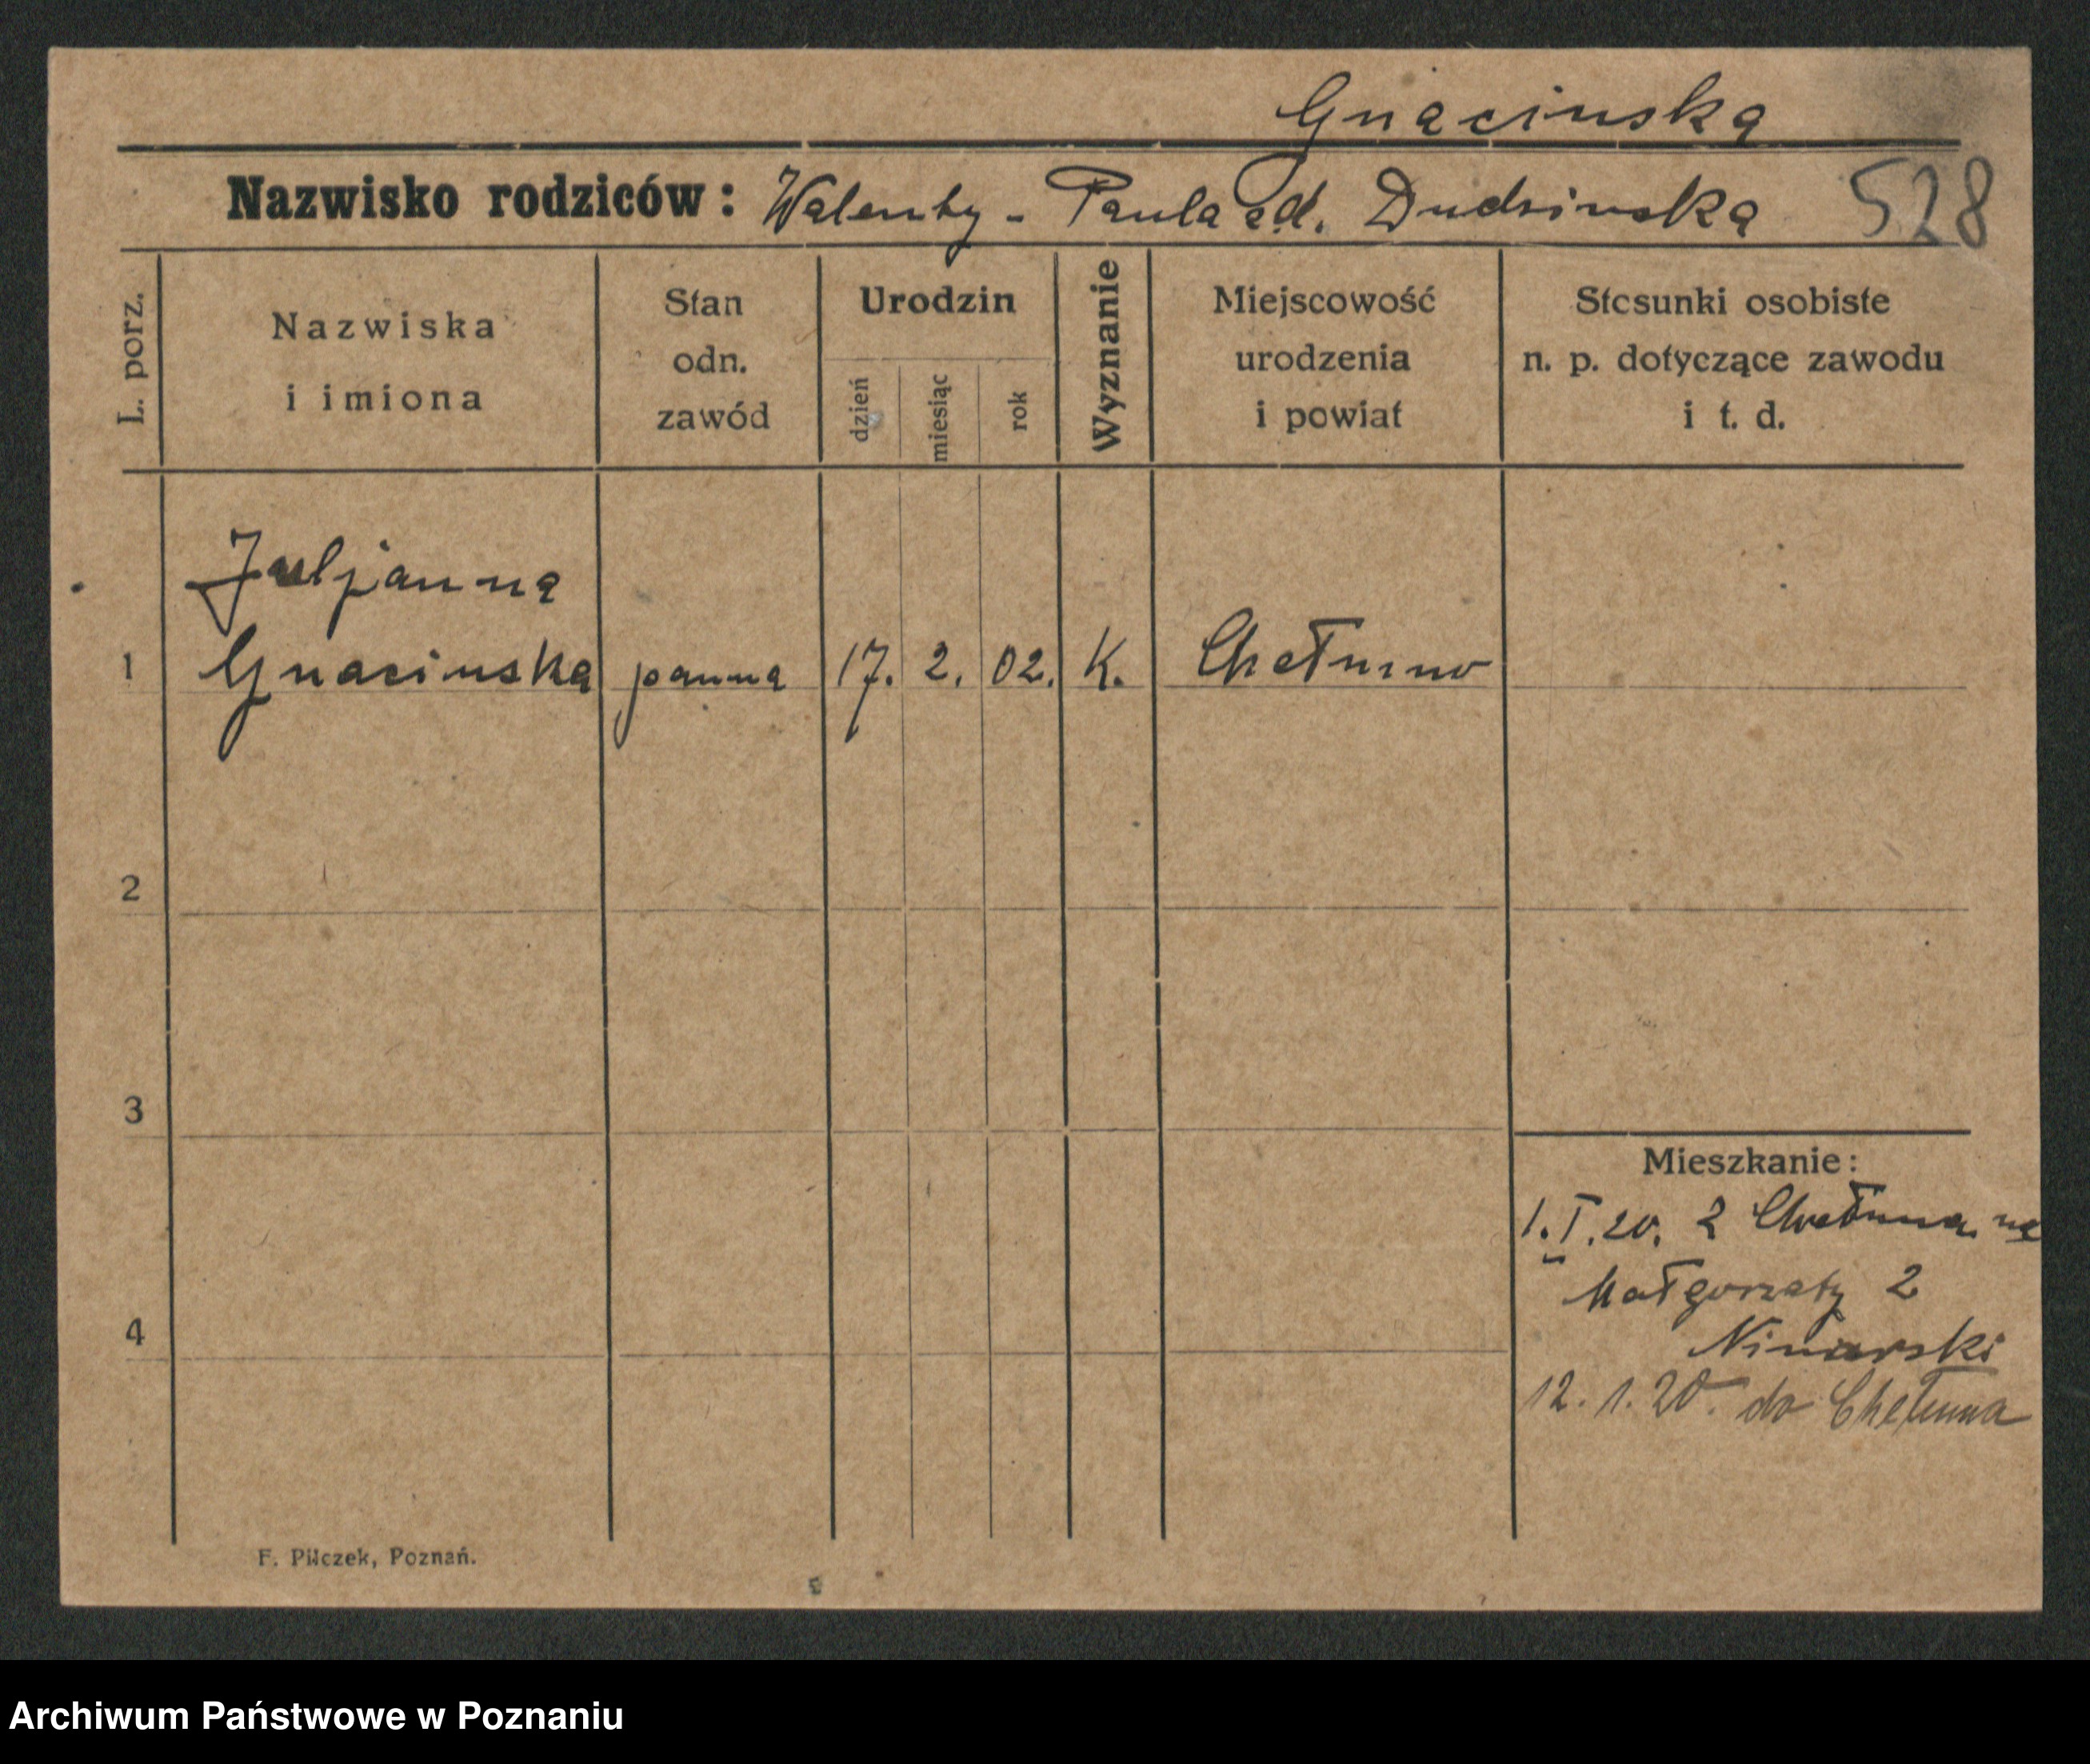 Gnacinska
Nazwisko rodziców: Walenty - Paula zd. Dudzinska 528
L. porz.
Nazwiska i imiona
Stan odn. zawód
Urodzin
dzień miesiąc rok
Wyznanie
Miejscowość urodzenia i powiat
Stosunki osobiste n. p. dotyczące zawodu i t. d.
Juljanna
1 Gnacinska panna 17. 2. 02. K. Chełmno
2
3
Mieszkanie:
1.I.20. z Chełmna na
Małgorzaty 2
4
12.1.20. do Chełmna
F. Pilczek, Poznań.
Archiwum Państwowe w Poznaniu